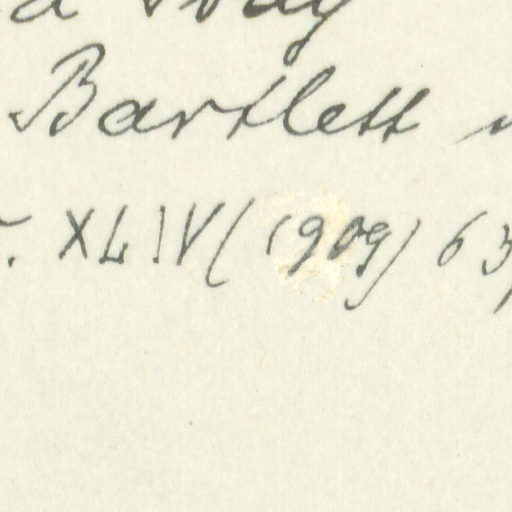 Bartlett
XLIV (1909) 63